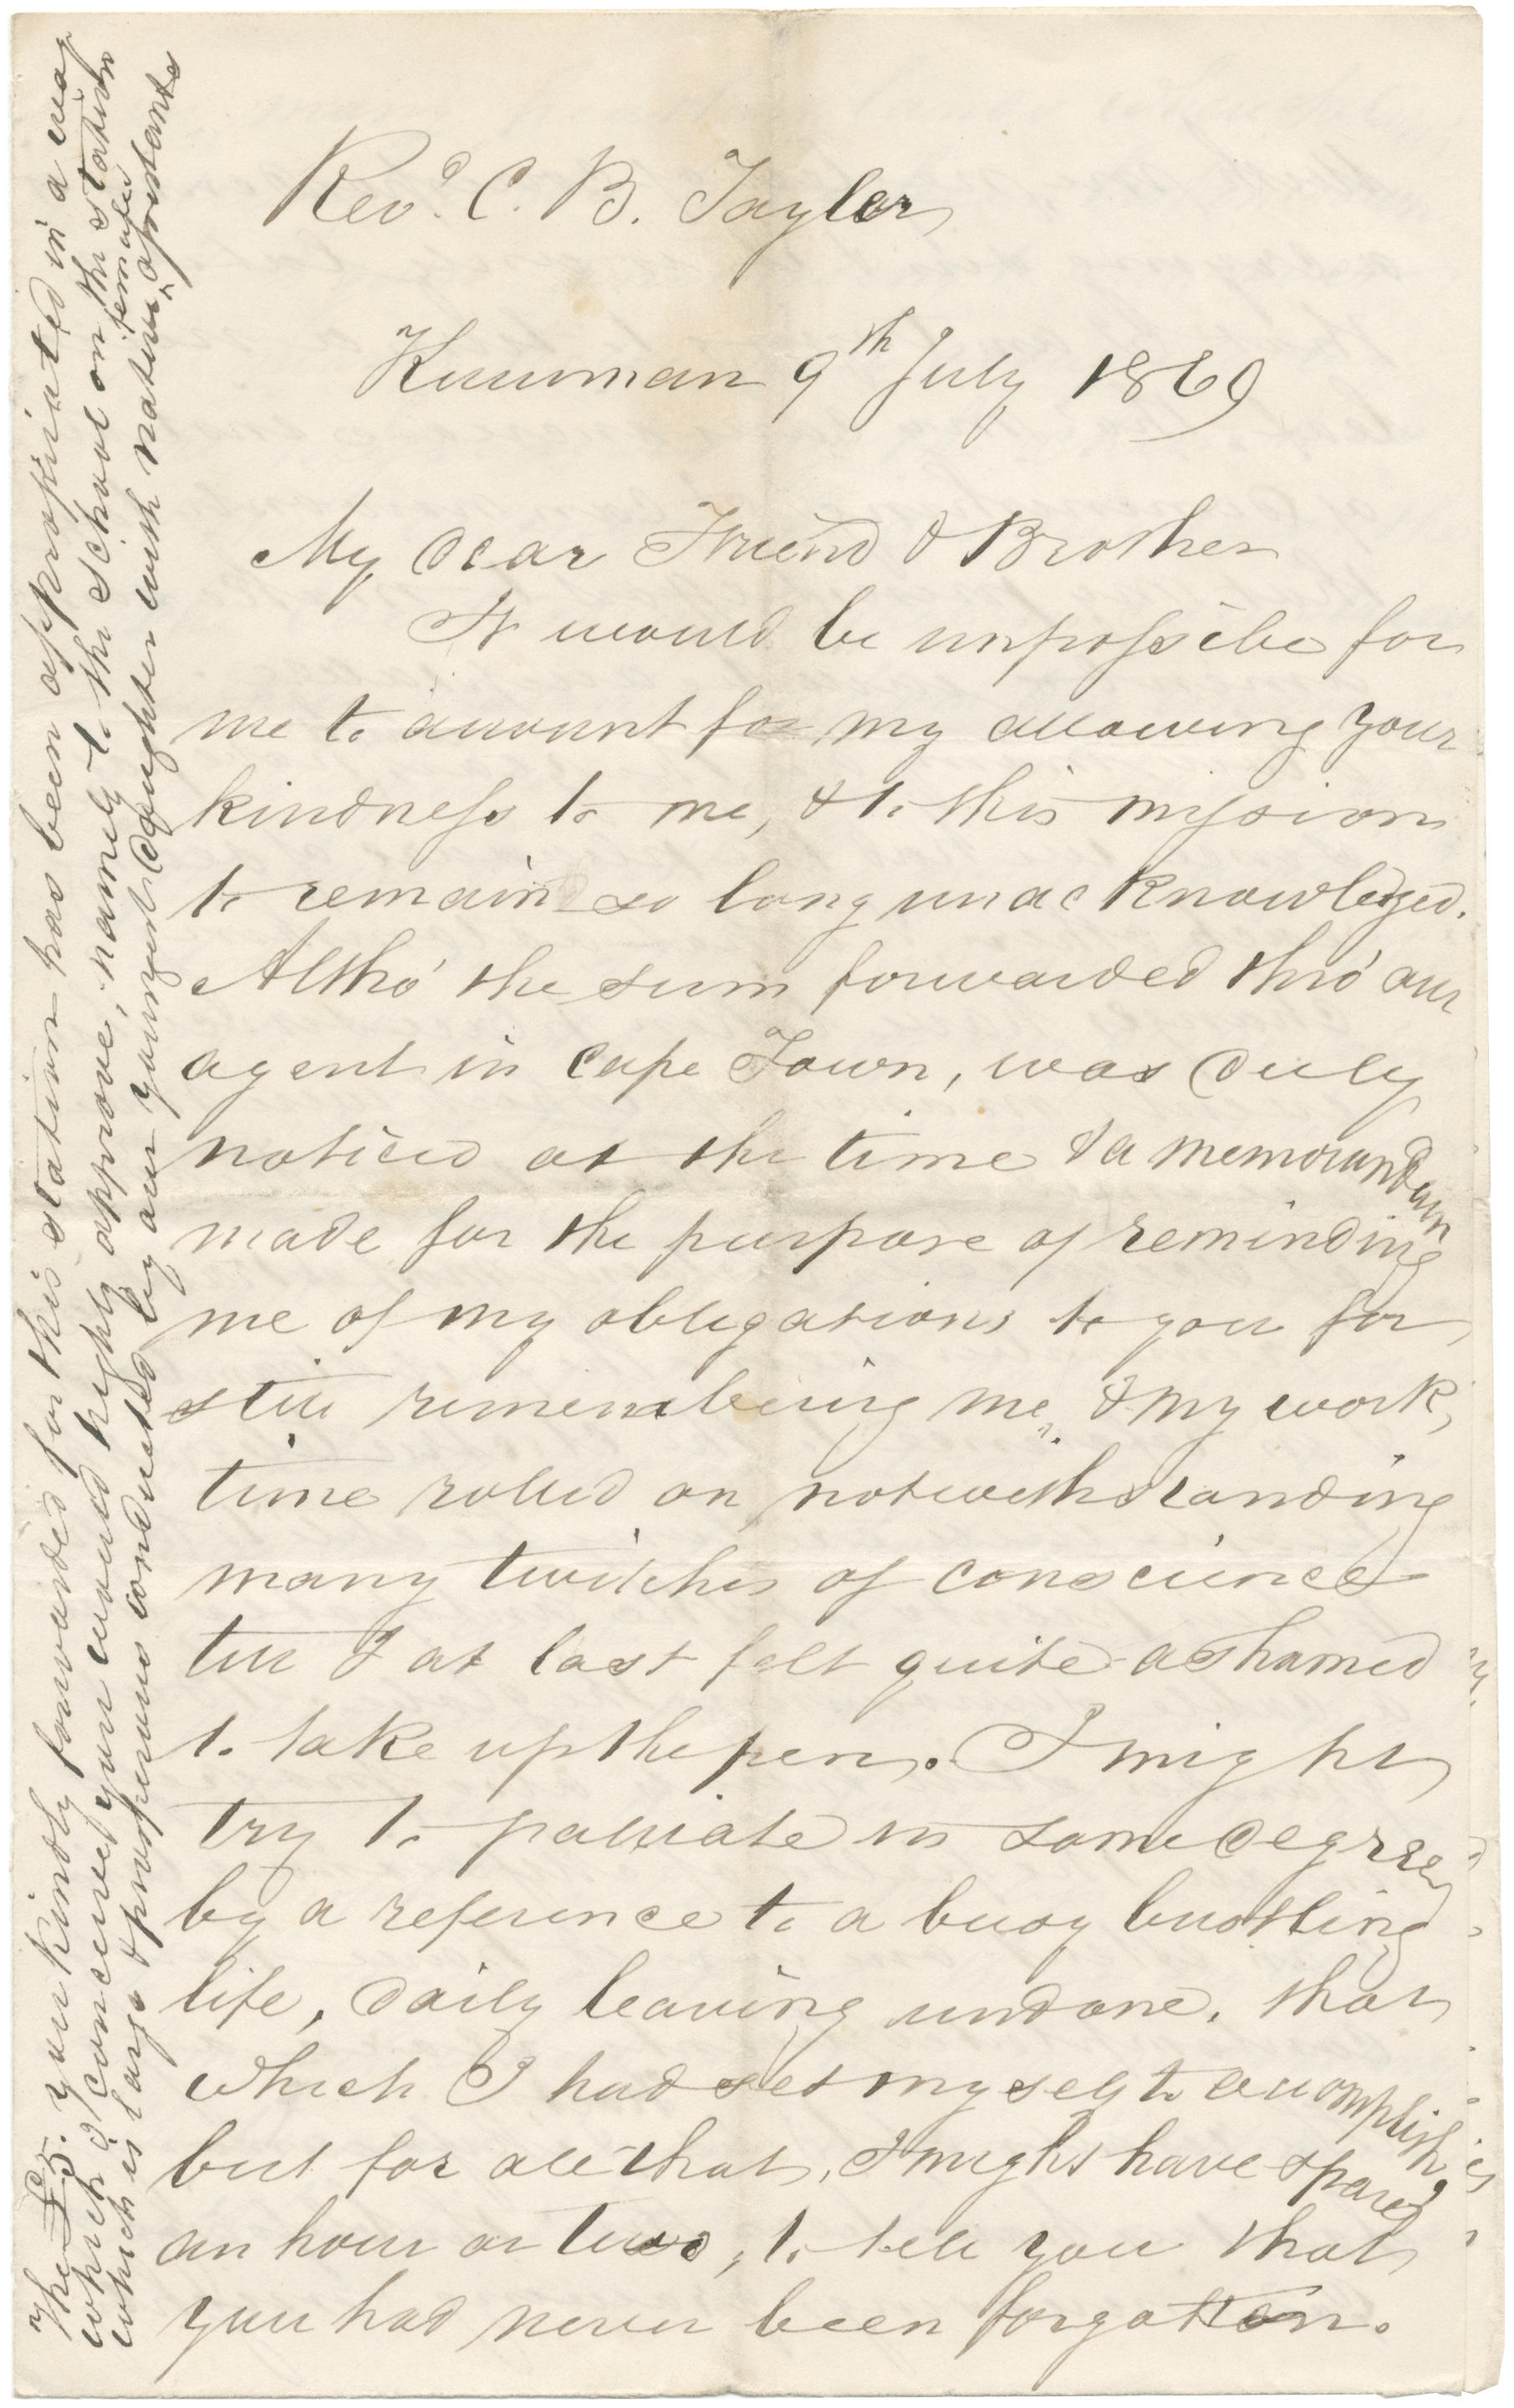 Revd. C. B. Tayler
Kuruman 9th July 1869
My dear Friend & Brother
It would be impossible for
me to account for my allowing your
kindness to me, & to this mission
to remain so long unacknowledged.
Altho' the sum forwarded thro' our
agent in Cape Town, was duly
noticed at the time & a memorandum
made for the purpose of reminding
me of my obligations to you for
still remembering me, & my work,
time rolled on notwithstanding
many twitches of conscience
till I at last felt quite ashamed
to take up the pen. I might
try to palliate in some degree
by a reference to a busy bustling
life, daily leaving undone, that
which I had set myself to accomplish,
but for all that, I might have spared
an hour or two, to tell you that
you had never been forgotten.
The £5. you kindly forwarded for this station has been appropriated in a way
which I conceived you would highly approve, namely to the school on the station
which is large & prosperous conducted by our youngest daughter with native ^ female assistants